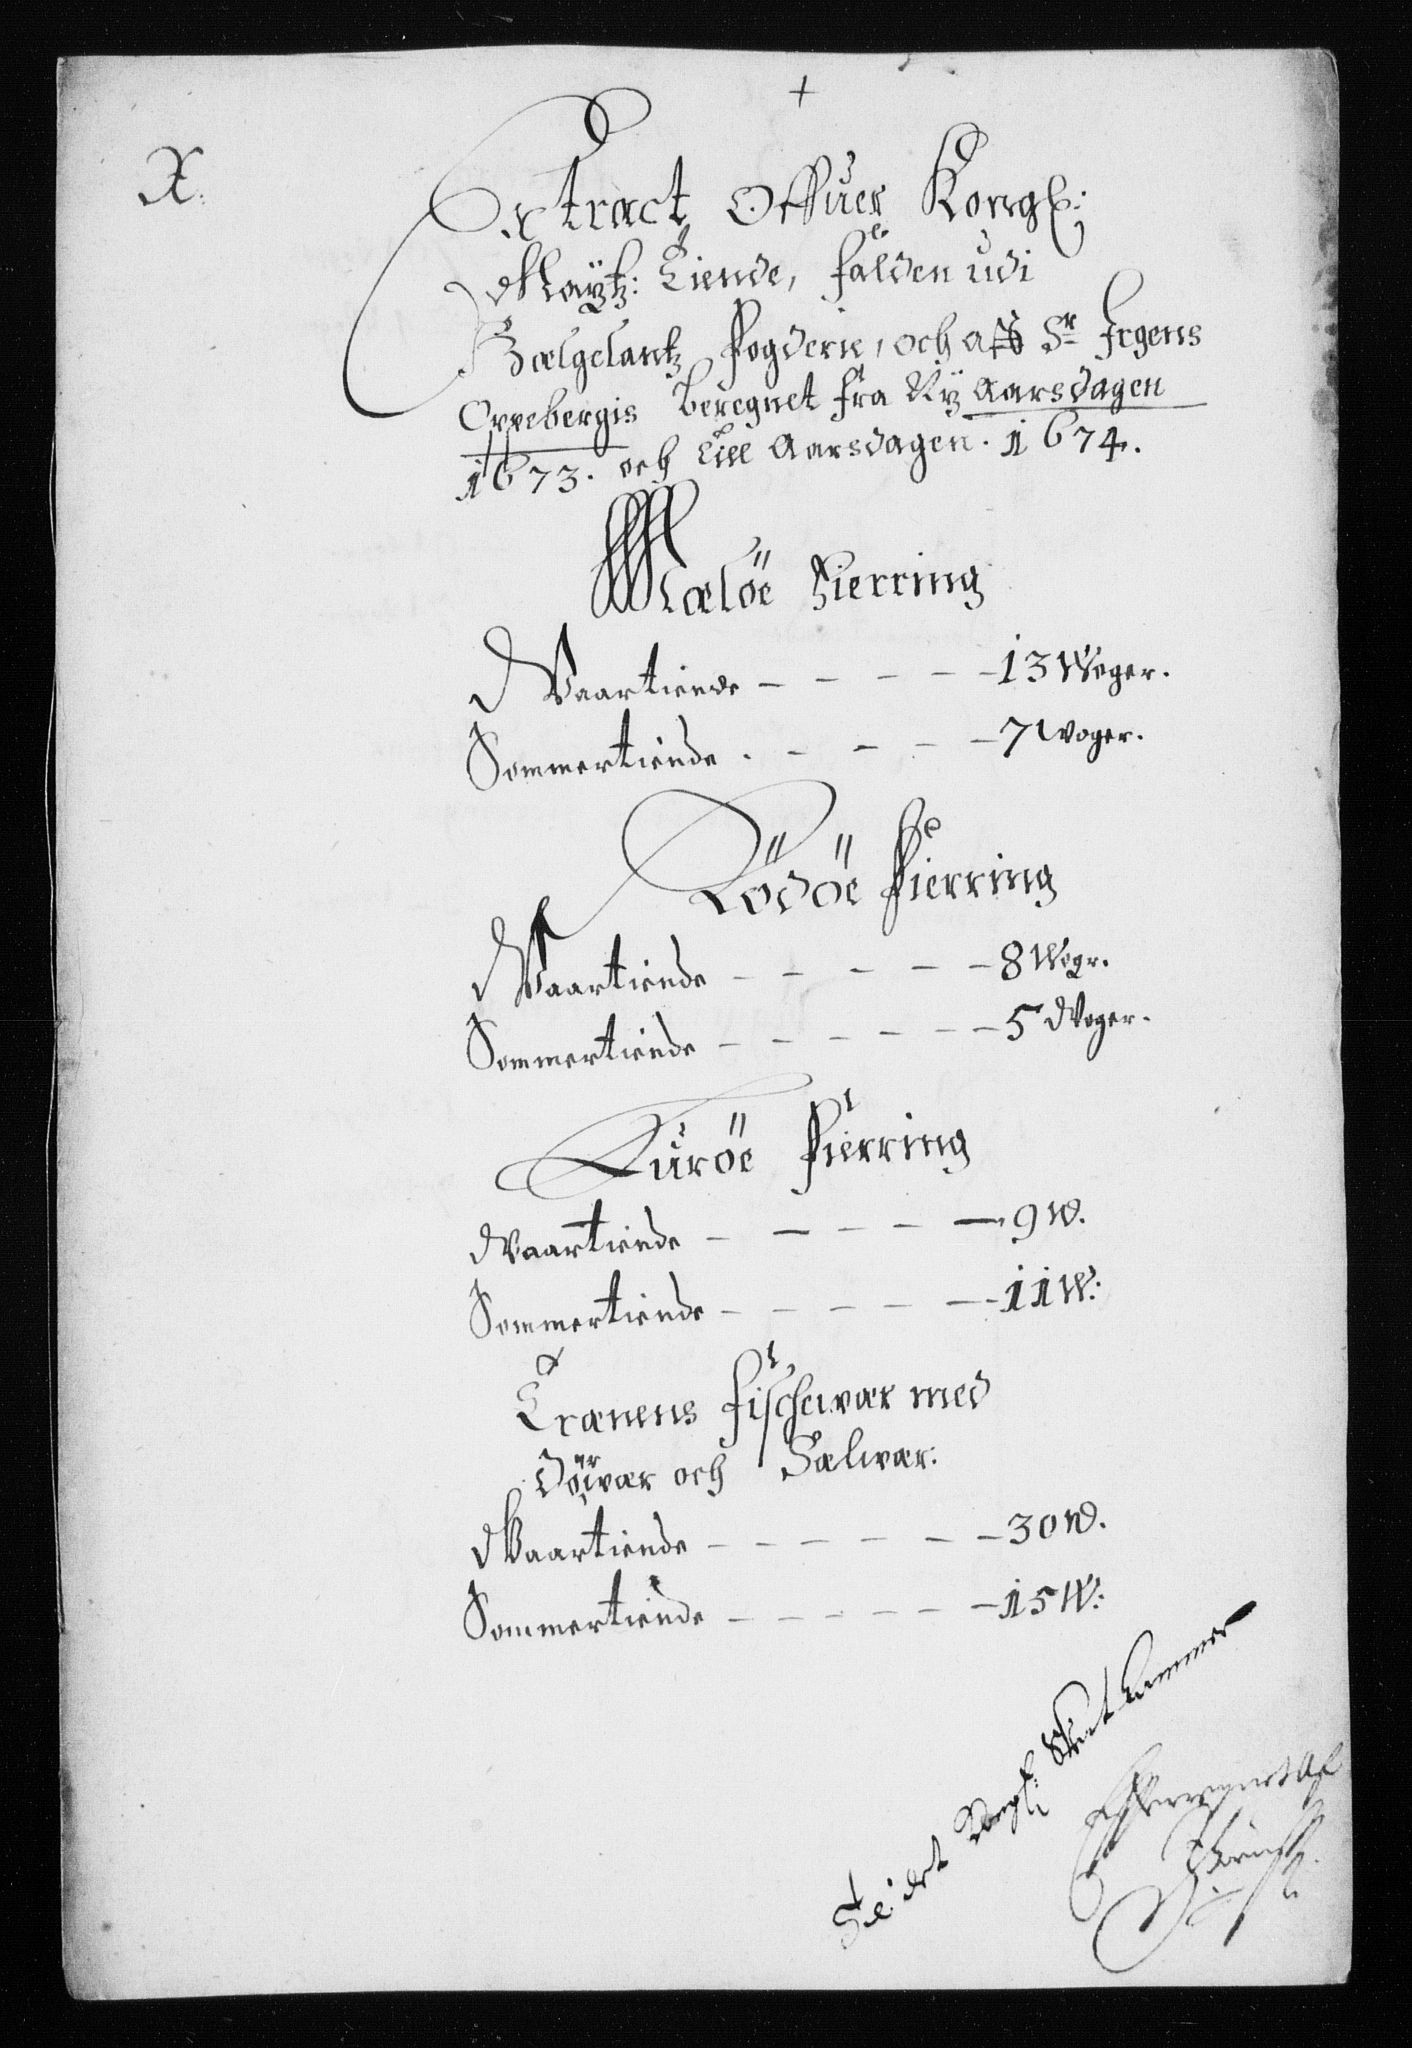 +
X.
Extract Offuer Kongl:
Maÿtz: Tiende, falden udi
Hælgelantz Fogderie, och aff Sr Irgens
Oppebergis beregnet fra Nÿ Aarsdagen
1673. och till Aarsdagen. 1674.
Meløe Fierring
Waartiende - - - - - 13 Woger.
Sommertiende . - - - - 7 Woger.
Rödöe Fierring
Waartiende - - - - - 8 Wogr.
Sommertiende - - - - - - 5 Woger.
Luröe Fierring
Waartiende - - - - - 9 W.
Sommertiende - - - - - - 11 W:
Trænens fischevær med
och Sælvær:
Waartiende - - - - - - 30 W.
Sommertiende - - - - - - 15 W:
det Kongl: Skat Cammer